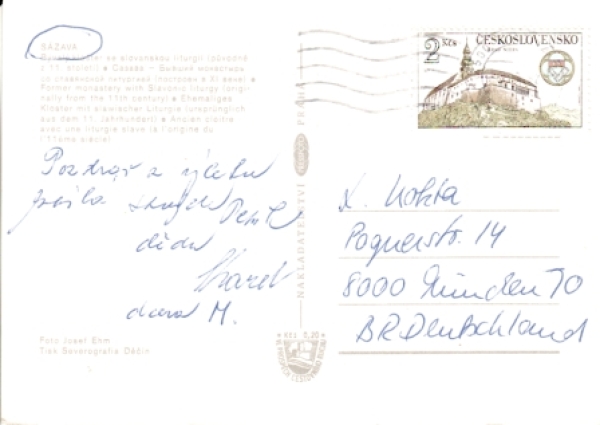 SÁZAVA
Býv. klášter se slovanskou liturgií (původně
z 11. století) • Сазава – Бывший монастырь
со славянской литургией (построен в XI веке) •
Former monastery with Slavonic liturgy (origi-
nally from the 11th century) • Ehemaliges
Kloster mit slawischer Liturgie (ursprünglich
aus dem 11. Jahrhundert) • Ancien cloître
avec une liturgie slave (à l'origine du
11ème siècle)
Pozdrav z výletu
posílá
děda
Karel
M.
Foto Josef Ehm
Tisk Severografia Děčín
NAKLADATELSTVÍ PRAHA
Kčs 0,20
2 Kčs
ČESKOSLOVENSKO
K. Kokta
Pognerstr. 14
8000 München 70
BR Deutschland